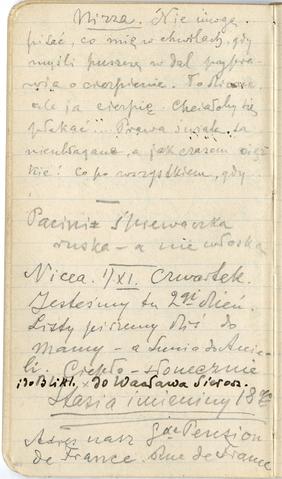 Nizza. Nie mogę
pisać, co mię w chwilach, gdy
myśli puszczę w dal przypra-
wia o cierpienie. To dziwne,
ale ja cierpię. Chciałoby się
płakać... Prawa świata są
nieubłagane, a jak czasem cięż-
kie! co po wszystkiem, gdy
Pacini = śpiewaczka
ruska – a nie włoska
Nicea. 1/XI. Czwartek.
Jesteśmy tu 2gi dzień.
Listy piszemy dziś do
Mamy – a Lunia do Anie-
li. Ciepło – słonecznie
i do Bibl. do Wacława Sierosz.
Stasia imieniny 18go
Adres nasz Gde Pension
de France. Rue de France